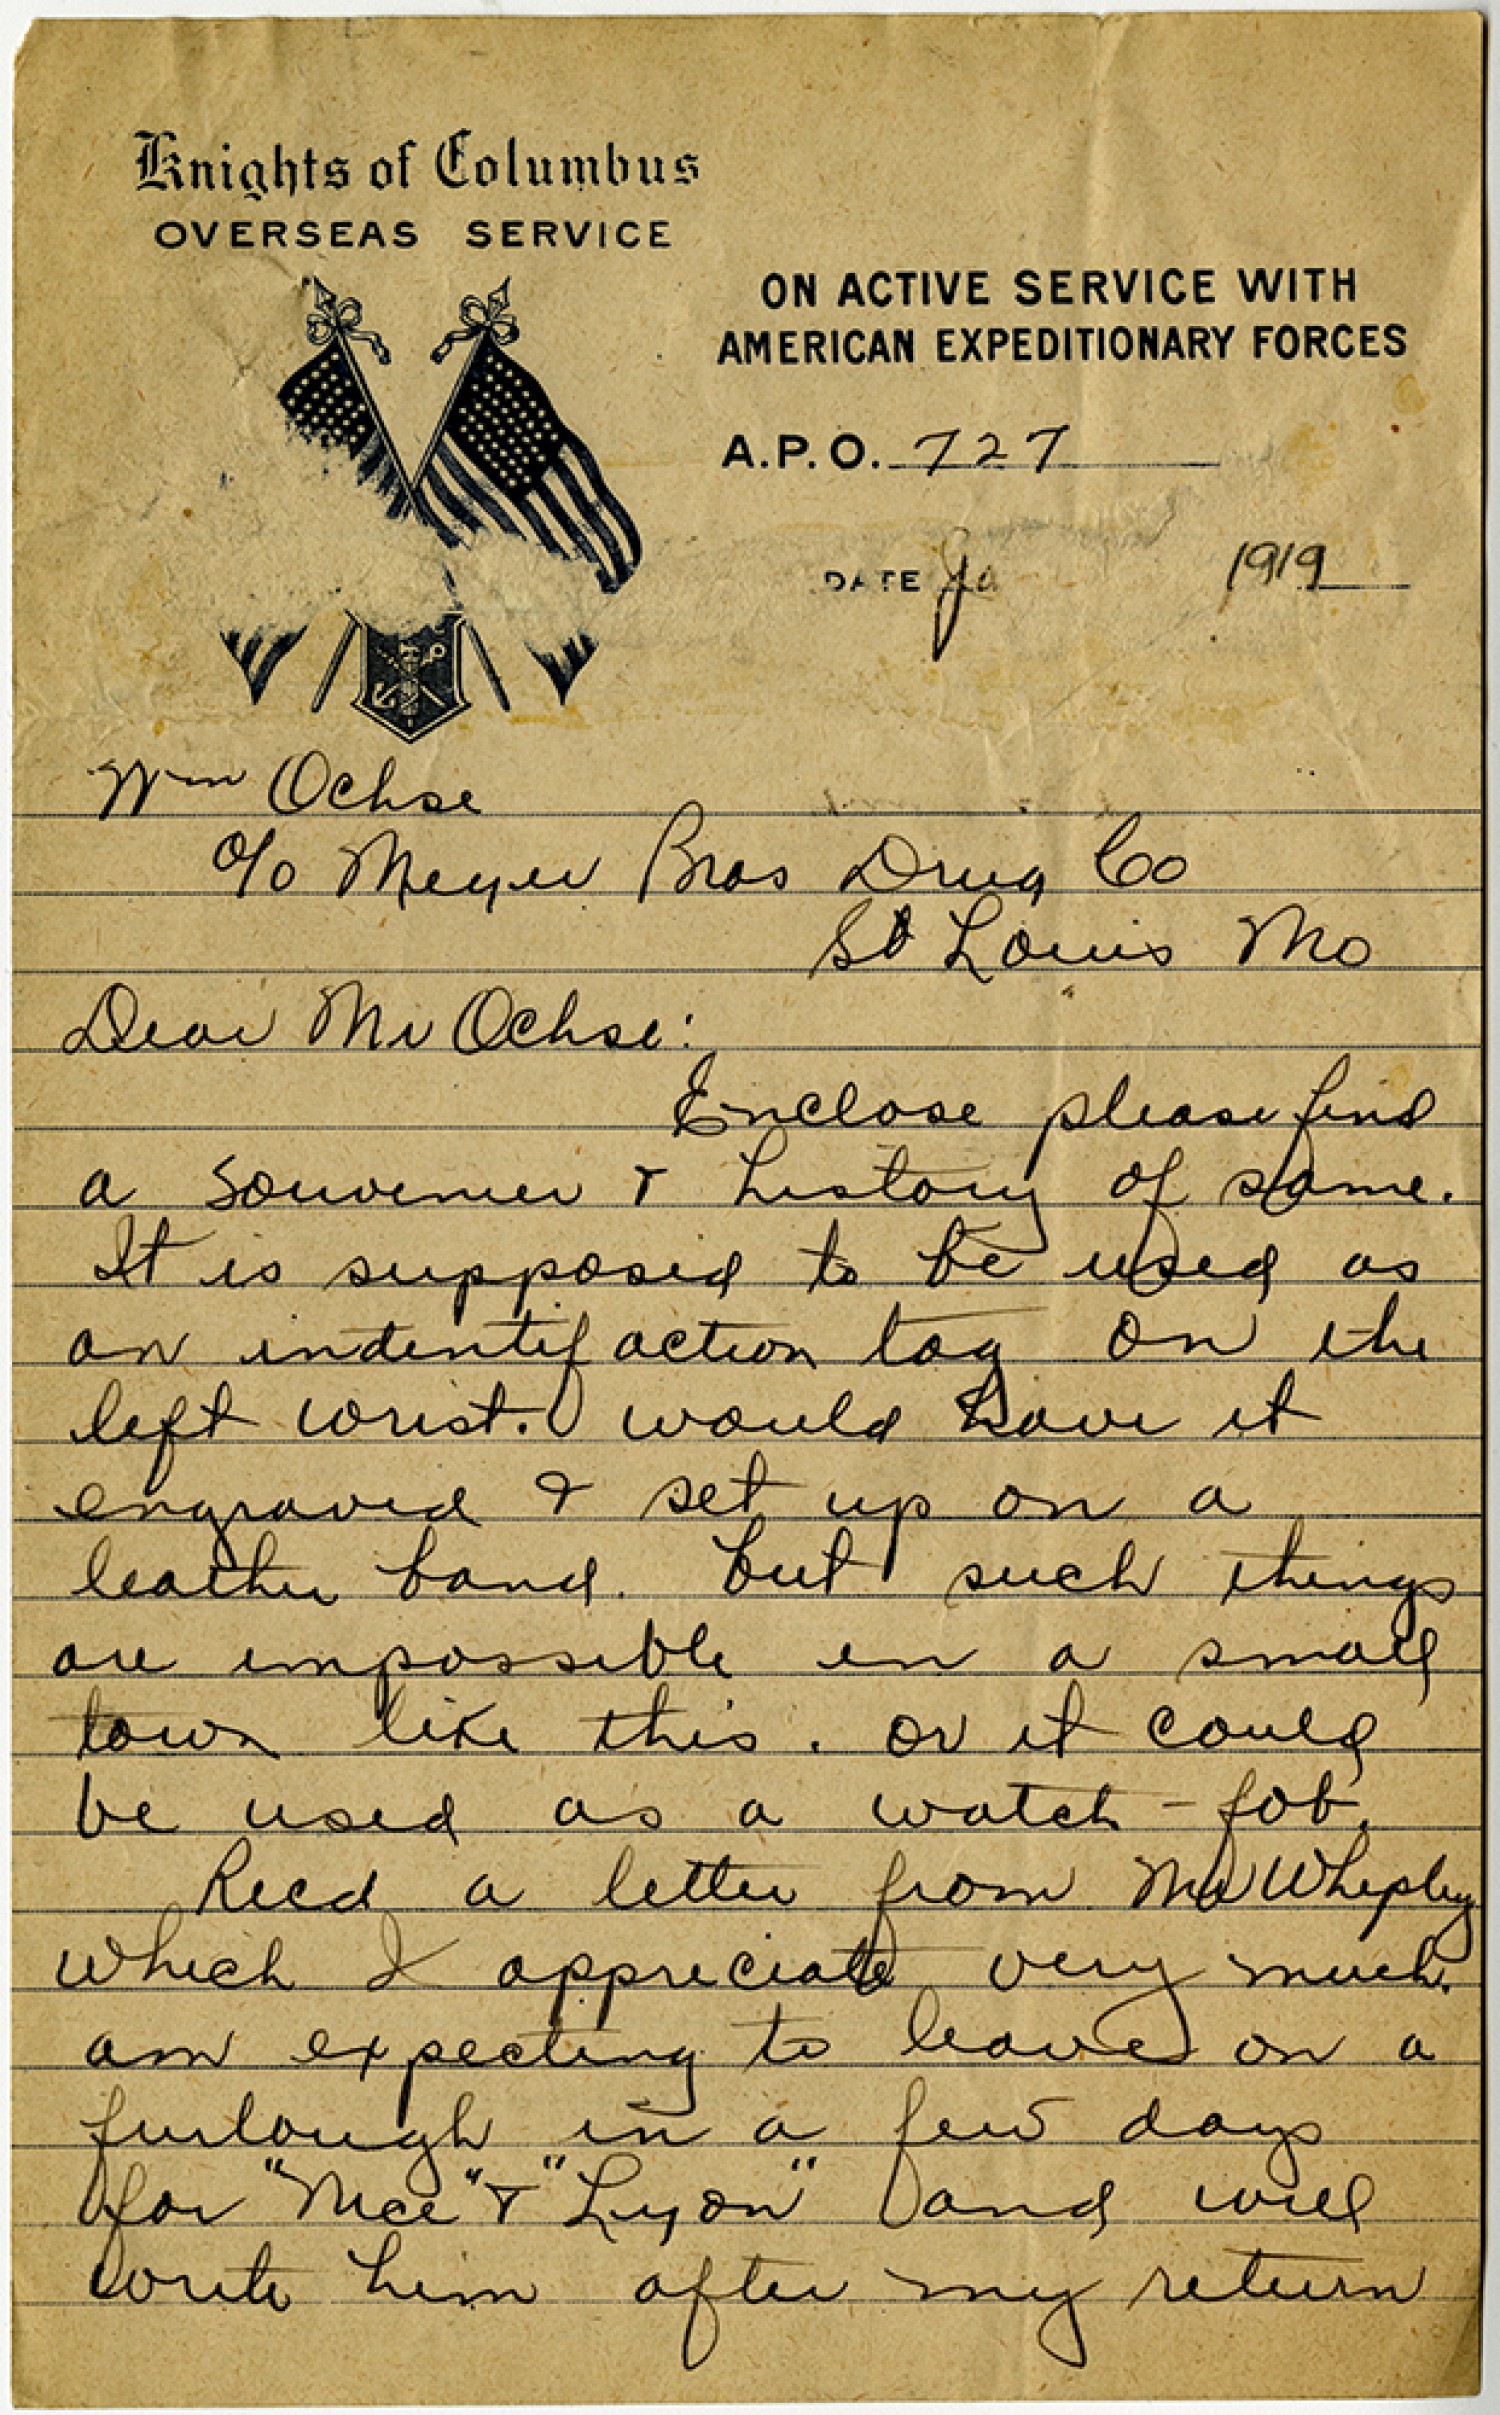 Knights of Columbus
OVERSEAS SERVICE
ON ACTIVE SERVICE WITH
AMERICAN EXPEDITIONARY FORCES
A.P.O. 727
DATE Ja 1919
Wm Ochse
c/o Meyer Bros Drug Co
St Louis Mo
Dear Mr Ochse:
Enclose please find
a souvenier & history of same.
It is supposed to be used as
an indentifaction tag on the
left wrist. would have it
engraved & set up on a
leather band. but such things
are impossible in a small
town like this. or it could
be used as a watch-fob.
Recd a letter from Mr Whepley
which I appreciate very much.
am expecting to leave on a
furlough in a few days
for "Nice" & "Lyon" and will
write him after my return